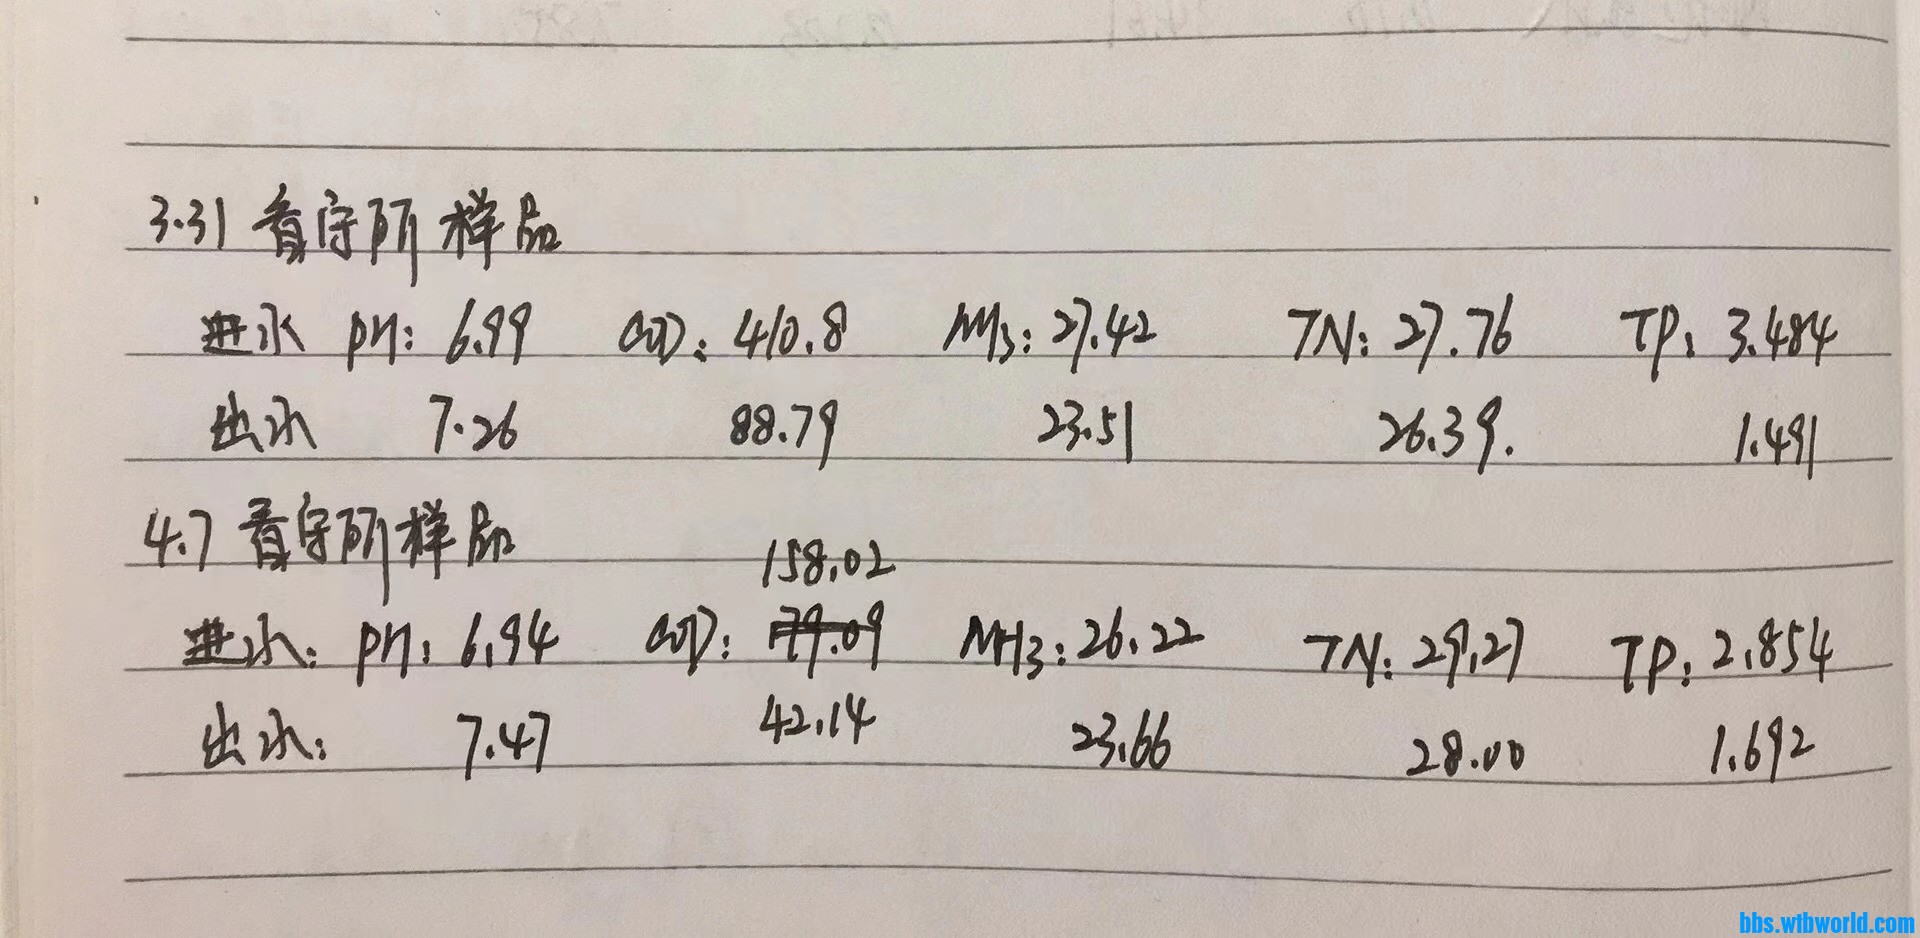 3.31 看守所样品
进水 PH: 6.99 COD: 410.8 NH3: 27.42 TN: 27.76 TP: 3.484
出水 7.26 88.79 23.51 26.39. 1.491
4.7 看守所样品
158.02
进水: PH: 6.94 COD: 79.09 NH3: 26.22 TN: 29.27 TP: 2.854
出水: 7.47 42.14 23.66 28.00 1.692
bbs.wtbworld.com